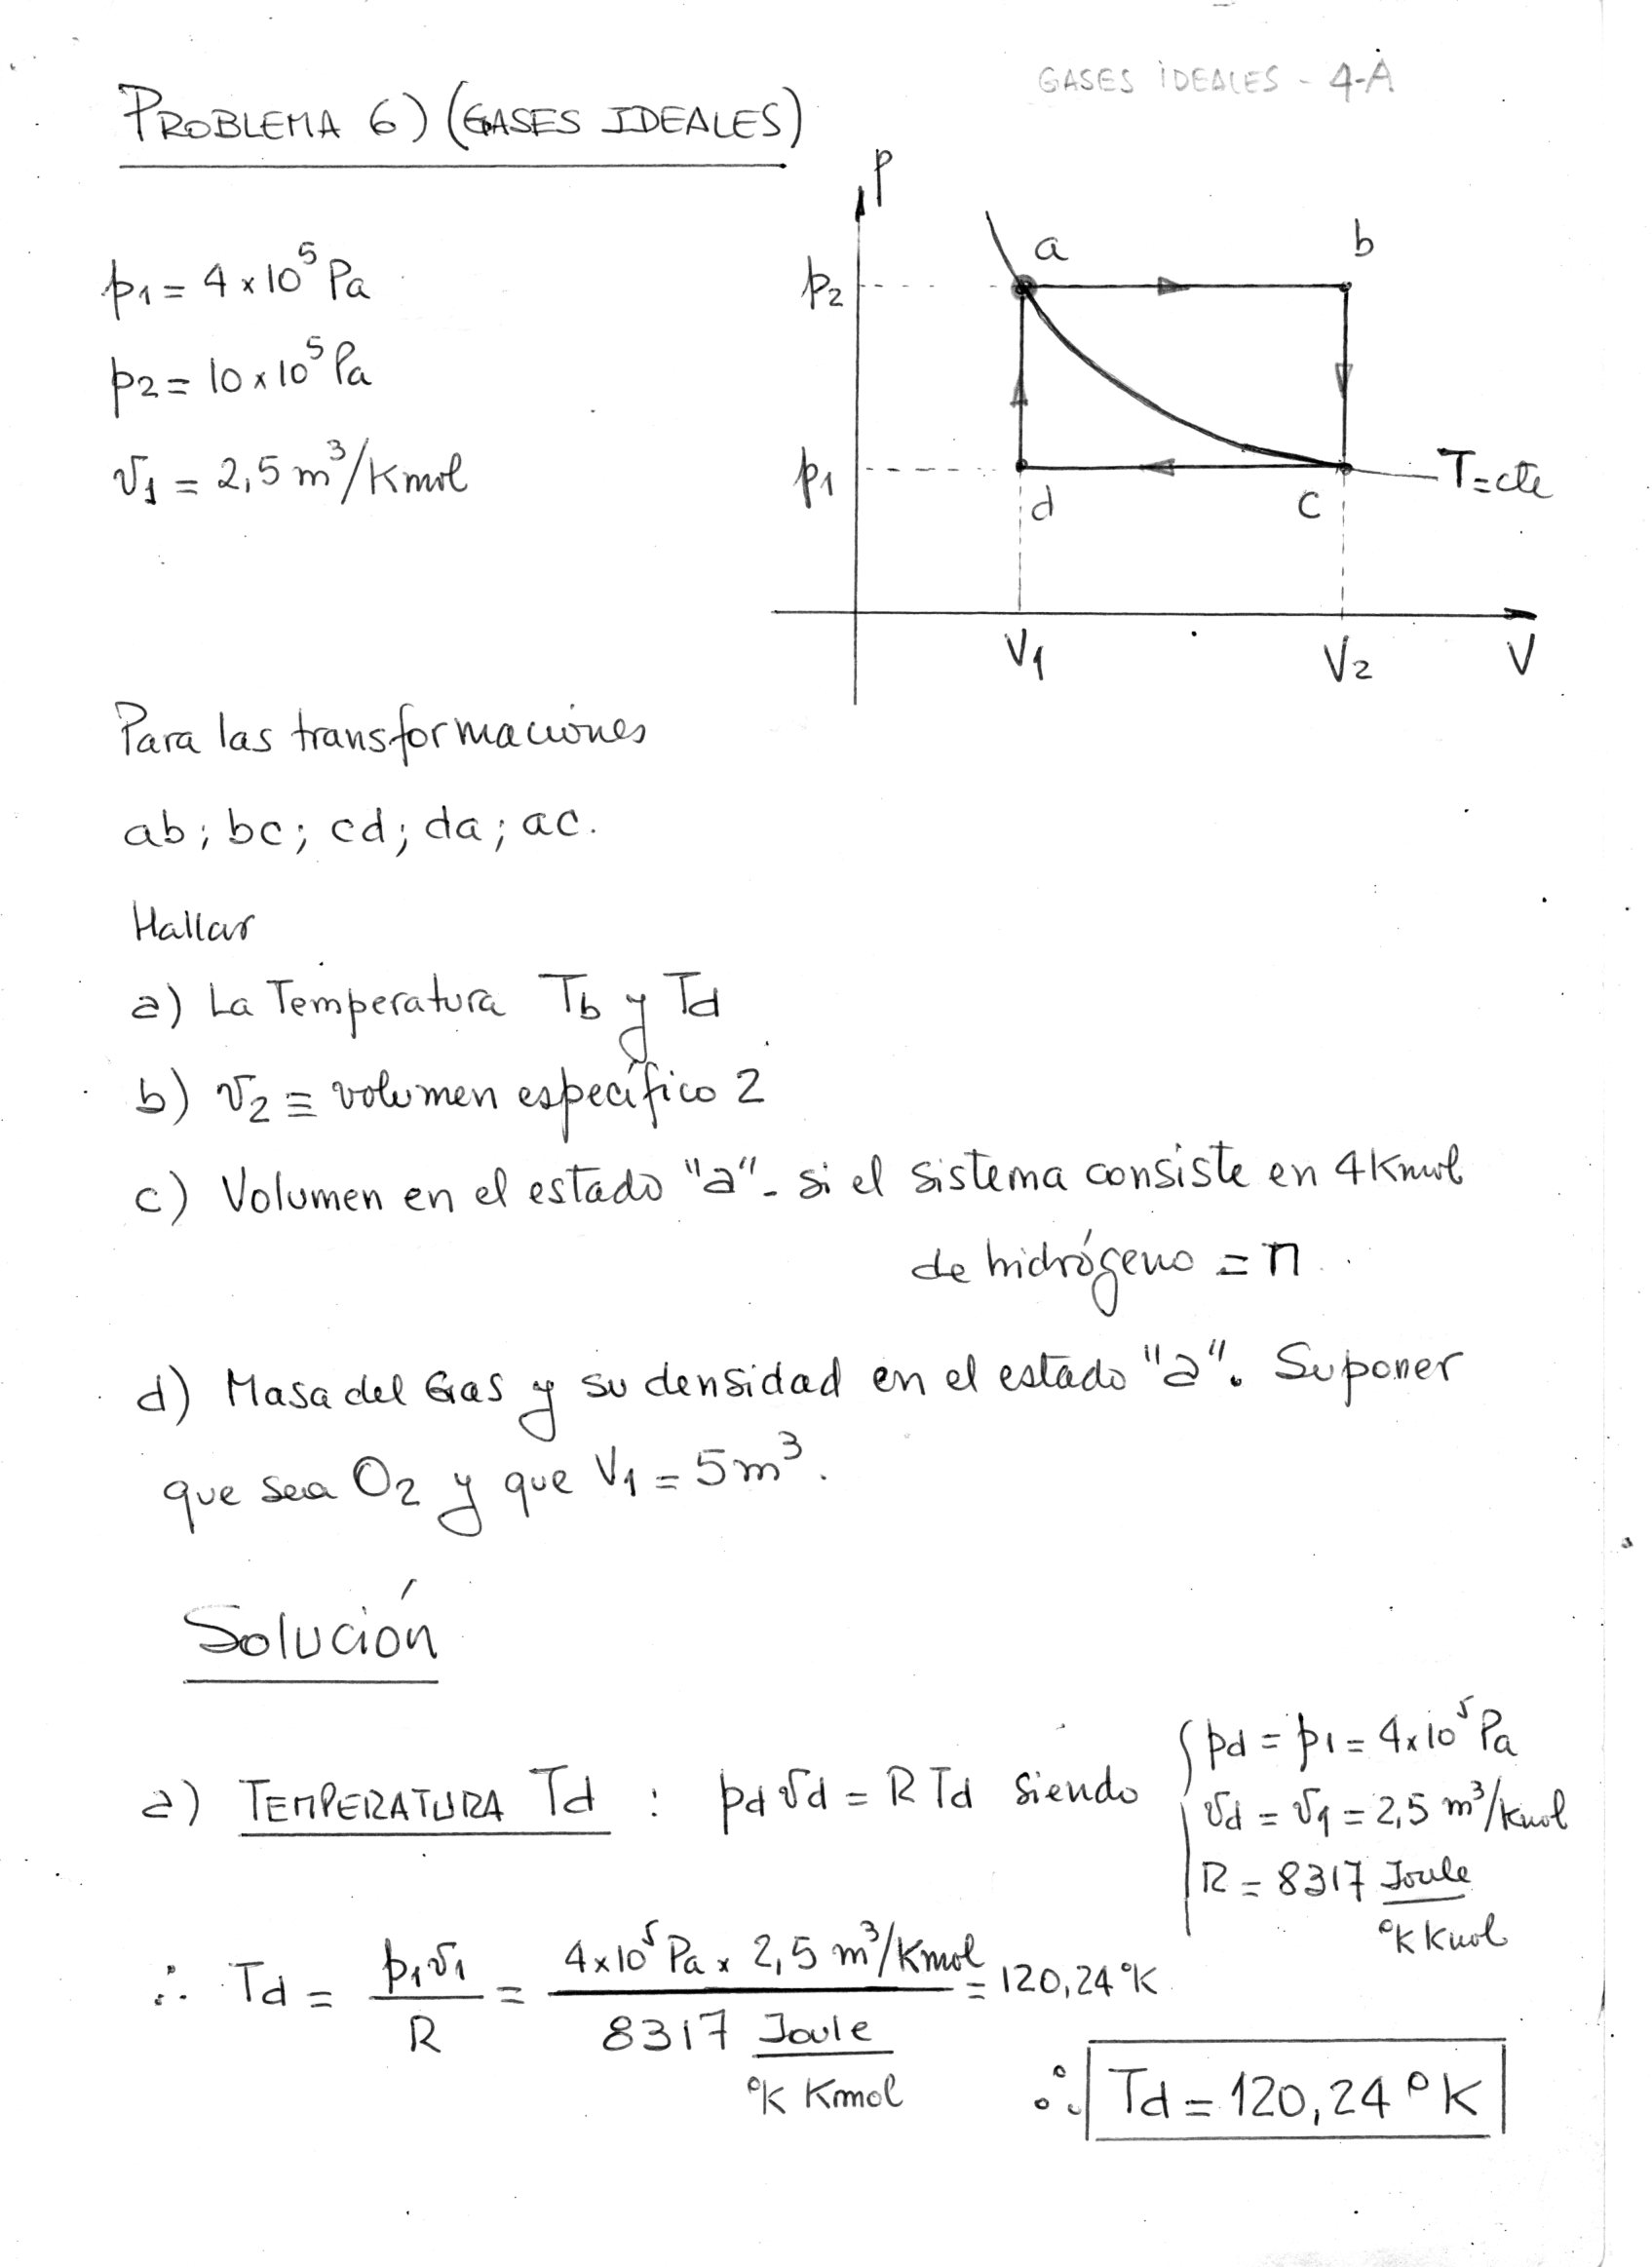 GASES IDEALES - 4-A
PROBLEMA 6) (GASES IDEALES)
p1 = 4 x 10⁵ Pa
p2 = 10 x 10⁵ Pa
v1 = 2,5 m³/Kmol
p
a
b
p2
p1
d
c
T=cte
V1
V2
V
Para las transformaciones
ab; bc; cd; da; ac.
Hallar
a) La Temperatura Tb y Td
b) v2 ≡ volumen específico 2
c) Volumen en el estado "a"- si el sistema consiste en 4Kmol
de hidrógeno = n
d) Masa del Gas y su densidad en el estado "a". Suponer
que sea O2 y que V1 = 5m³.
Solución
a) TEMPERATURA Td : pd vd = R Td siendo { pd = p1 = 4x10⁵ Pa
vd = v1 = 2,5 m³/Kmol
R = 8317 Joule / °K Kmol
∴ Td = p1v1 / R = 4x10⁵ Pa x 2,5 m³/Kmol / 8317 Joule / °K Kmol = 120,24 °K
∴ Td = 120,24 °K